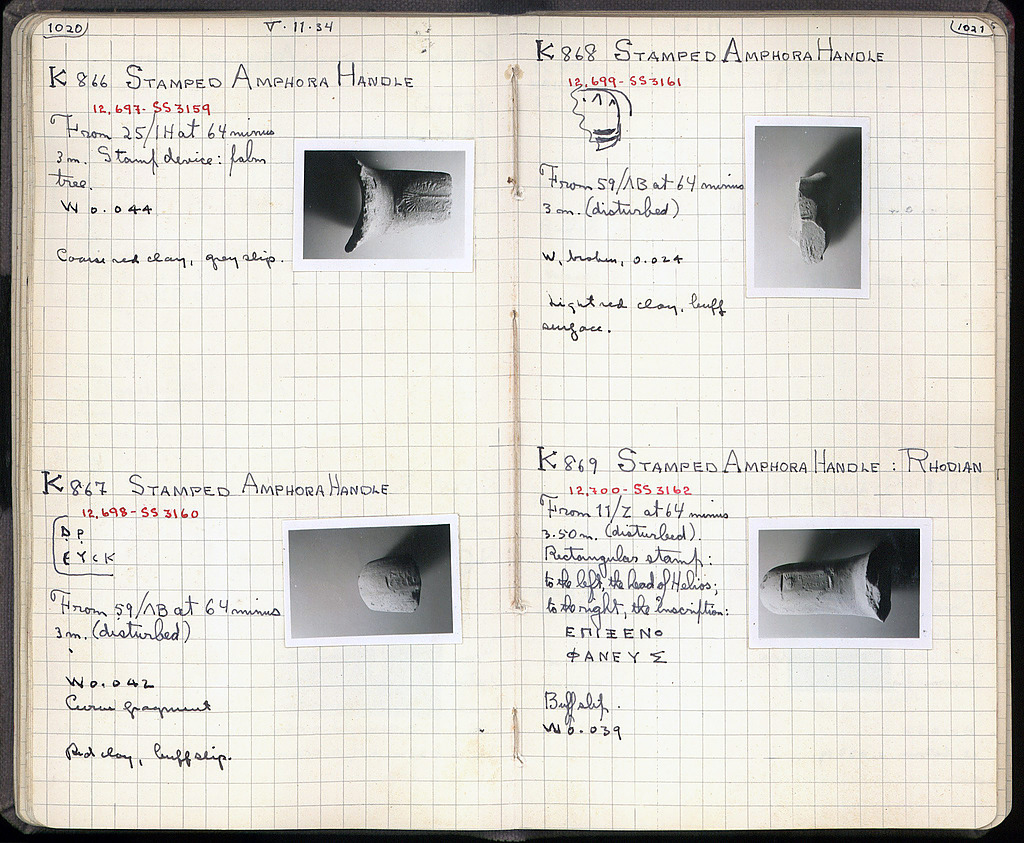 1020
V·11·34
K 866 STAMPED AMPHORA HANDLE
12,697- SS 3159
From 25/ΙΗ at 64 minus
3 m. Stamp device: palm
tree.
W 0.044
Coarse red clay, grey slip.
K 867 STAMPED AMPHORA HANDLE
12,698- SS 3160
ΕΥCΚ
From 59/ΛΒ at 64 minus
3 m. (disturbed)
W 0.042
Curve fragment
Red clay, buff slip.
1021
K 868 STAMPED AMPHORA HANDLE
12,699- SS 3161
From 59/ΛΒ at 64 minus
3 m. (disturbed)
W, broken, 0.024
Light red clay, buff
surface.
K 869 STAMPED AMPHORA HANDLE : RHODIAN
12,700- SS 3162
From 11/Z at 64 minus
3.50 m. (disturbed).
Rectangular stamp:
to the left, the head of Helios;
to the right, the inscription:
ΕΠΙΞΕΝΟ
ΦΑΝΕΥΣ
Buff slip.
W 0.039